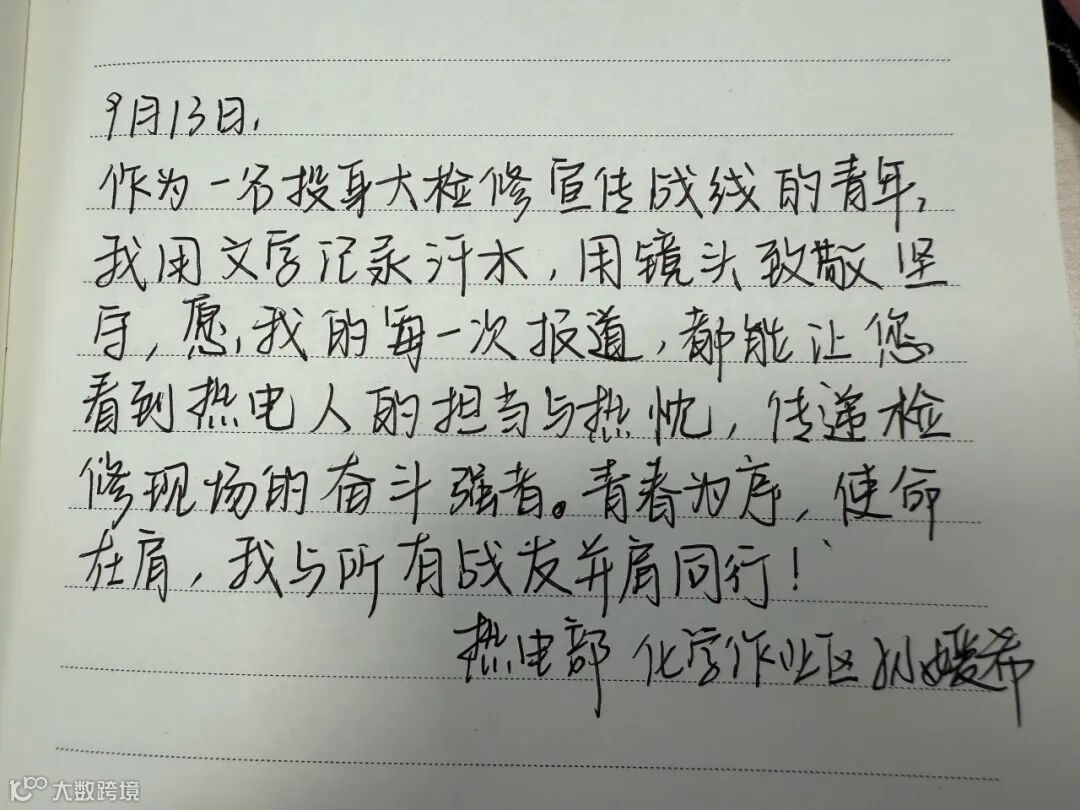 9月13日,
作为一名投身大检修宣传战线的青年,
我用文字记录汗水,用镜头致敬坚
守,愿,我的每一次报道,都能让您
看到热电人的担当与热忱,传递检
修现场的奋斗强者。青春为序,使命
在肩,我与所有战友并肩同行!
热电部 化学作业区孙媛希
大数跨境